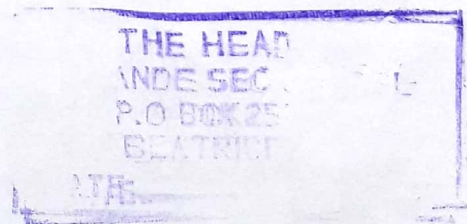 THE HEAD
ANDE SEC L
P.O BOX 25
BEATRICE
ATE